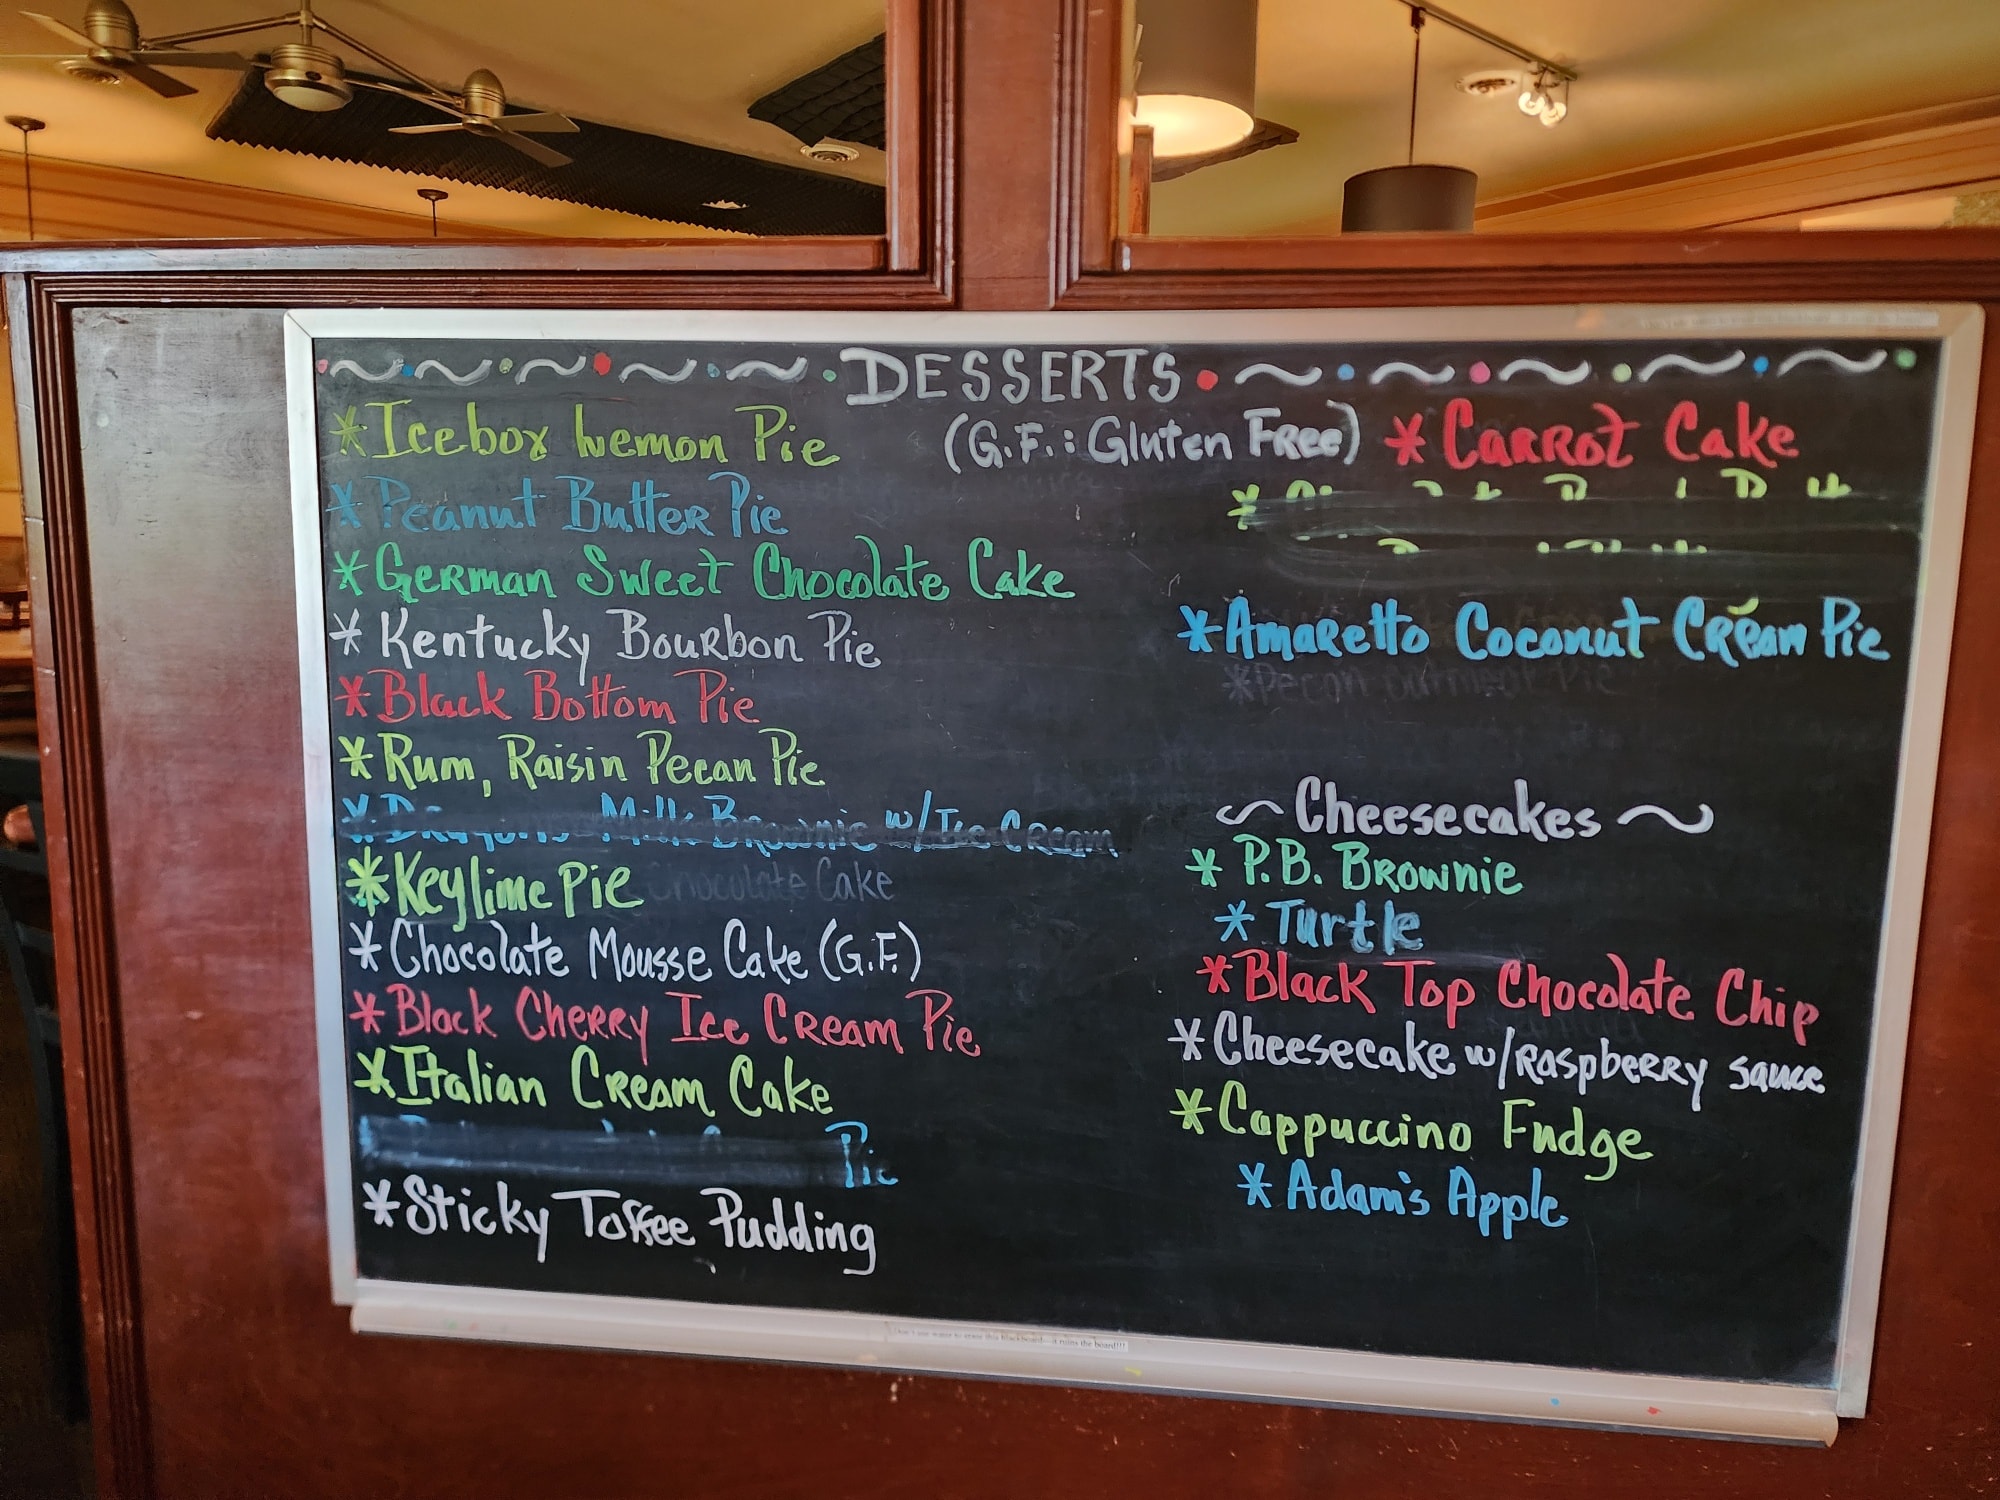 DESSERTS
*Icebox Lemon Pie
(G.F.: Gluten Free)
*Peanut Butter Pie
*German Sweet Chocolate Cake
*Kentucky Bourbon Pie
*Black Bottom Pie
*Rum, Raisin Pecan Pie
Milk Brownie w/Ice Cream
*Keylime Pie
Chocolate Cake
*Chocolate Mousse Cake (G.F.)
*Black Cherry Ice Cream Pie
*Italian Cream Cake
Pie
*Sticky Toffee Pudding
*Carrot Cake
*Amaretto Coconut Cream Pie
*Pecan oatmeal Pie
~Cheesecakes~
*P.B. Brownie
*Turtle
*Black Top Chocolate Chip
*Cheesecake w/raspberry sauce
*Cappuccino Fudge
*Adam's Apple